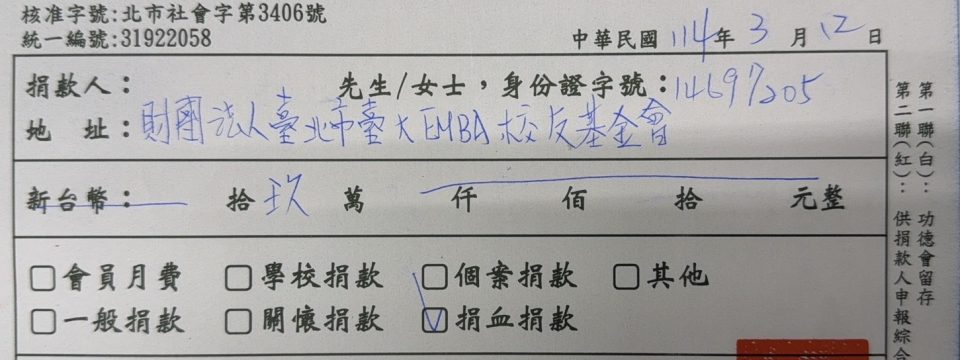 核准字號:北市社會字第3406號
統一編號:31922058
中華民國 114年 3 月 12 日
捐款人： 先生/女士，身份證字號：14697205
地 址：財團法人臺北市臺大EMBA校友基金會
新台幣： 拾 玖 萬 仟 佰 拾 元整
□會員月費 □學校捐款 □個案捐款 □其他
□一般捐款 □關懷捐款 ☑捐血捐款
第一聯(白)：功德會留存
第二聯(紅)：供捐款人申報綜合